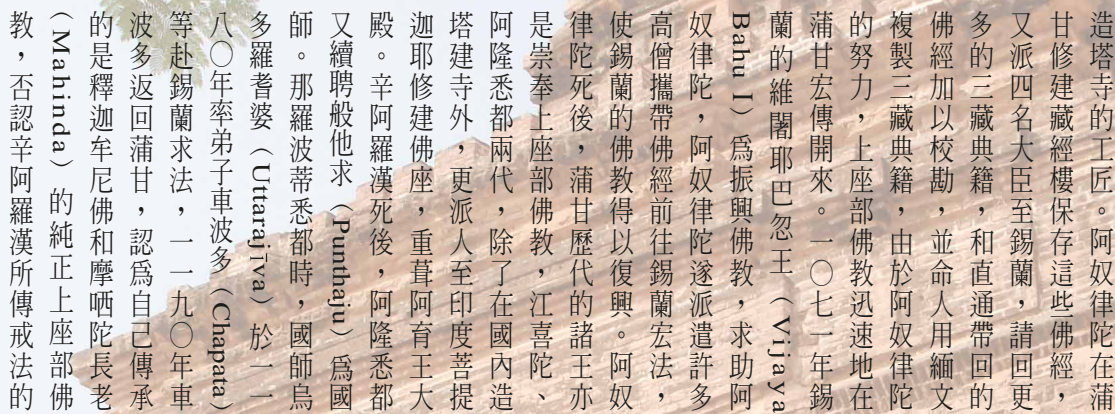 造塔寺的工匠。阿奴律陀在蒲
甘修建藏經樓保存這些佛經，
又派四名大臣至錫蘭，請回更
多的三藏典籍，和直通帶回的
佛經加以校勘，並命人用緬文
複製三藏典籍，由於阿奴律陀
的努力，上座部佛教迅速地在
蒲甘宏傳開來。一〇七一年錫
蘭的維闍耶巴忽王（Vijaya
Bahu I）爲振興佛教，求助阿
奴律陀，阿奴律陀遂派遣許多
高僧攜帶佛經前往錫蘭宏法，
使錫蘭的佛教得以復興。阿奴
律陀死後，蒲甘歷代的諸王亦
是崇奉上座部佛教，江喜陀、
阿隆悉都兩代，除了在國內造
塔建寺外，更派人至印度菩提
迦耶修建佛座，重葺阿育王大
殿。辛阿羅漢死後，阿隆悉都
又續聘般他求（Punthaju）爲國
師。那羅波蒂悉都時，國師烏
多羅耆婆（Uttarajīva）於一一
八〇年率弟子車波多（Chapata）
等赴錫蘭求法，一一九〇年車
波多返回蒲甘，認爲自己傳承
的是釋迦牟尼佛和摩哂陀長老
（Mahinda）的純正上座部佛
教，否認辛阿羅漢所傳戒法的